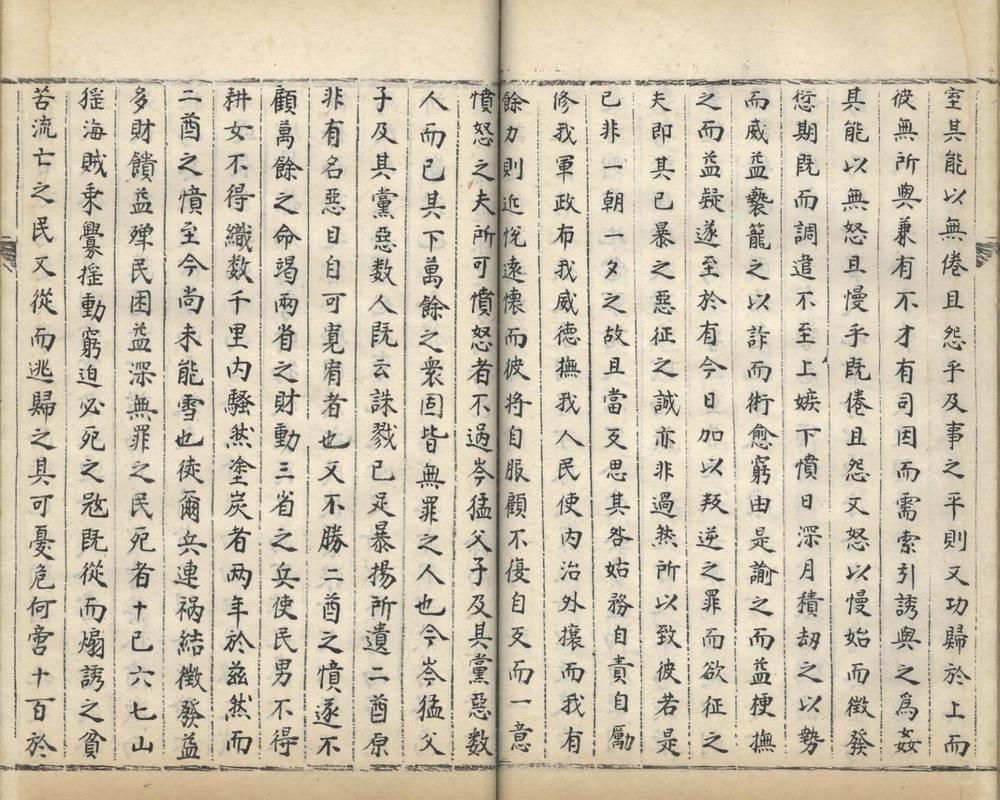 室其能以無倦且怨乎及事之平則又功歸於上而
彼無所與兼有不才有司因而需索引誘與之為姦
其能以無怒且慢乎既倦且怨又怒以慢始而徵發
愆期既而調遣不至上嫉下憤日深月積刼之以勢
而威益褻籠之以詐而術愈窮由是諭之而益梗撫
之而益疑遂至於有今日加以叛逆之罪而欲征之
夫即其已暴之惡征之誠亦非過然所以致彼若是
已非一朝一夕之故且當反思其咎姑務自責自勵
修我軍政布我威德撫我人民使内治外攘而我有
餘力則近悅遠懷而彼將自服顧不優自反而一意
憤怒之夫所可憤怒者不過岑猛父子及其黨惡數
人而已其下萬餘之衆固皆無罪之人也今岑猛父
子及其黨惡数人既云誅戮已足暴揚所遺二酋原
非有名惡目自可寛宥者也又不勝二酋之憤遂不
顧萬餘之命竭兩省之財動三省之兵使民男不得
耕女不得織数千里内騷然塗炭者两年於茲然而
二酋之憤至今尚未能雪也徒爾兵連禍結徵發益
多財饋益殫民困益深無罪之民死者十已六七山
猺海賊乘釁揺動窮迫必死之冦既從而煽誘之貧
苦流亡之民又從而逃歸之其可憂危何啻十百於